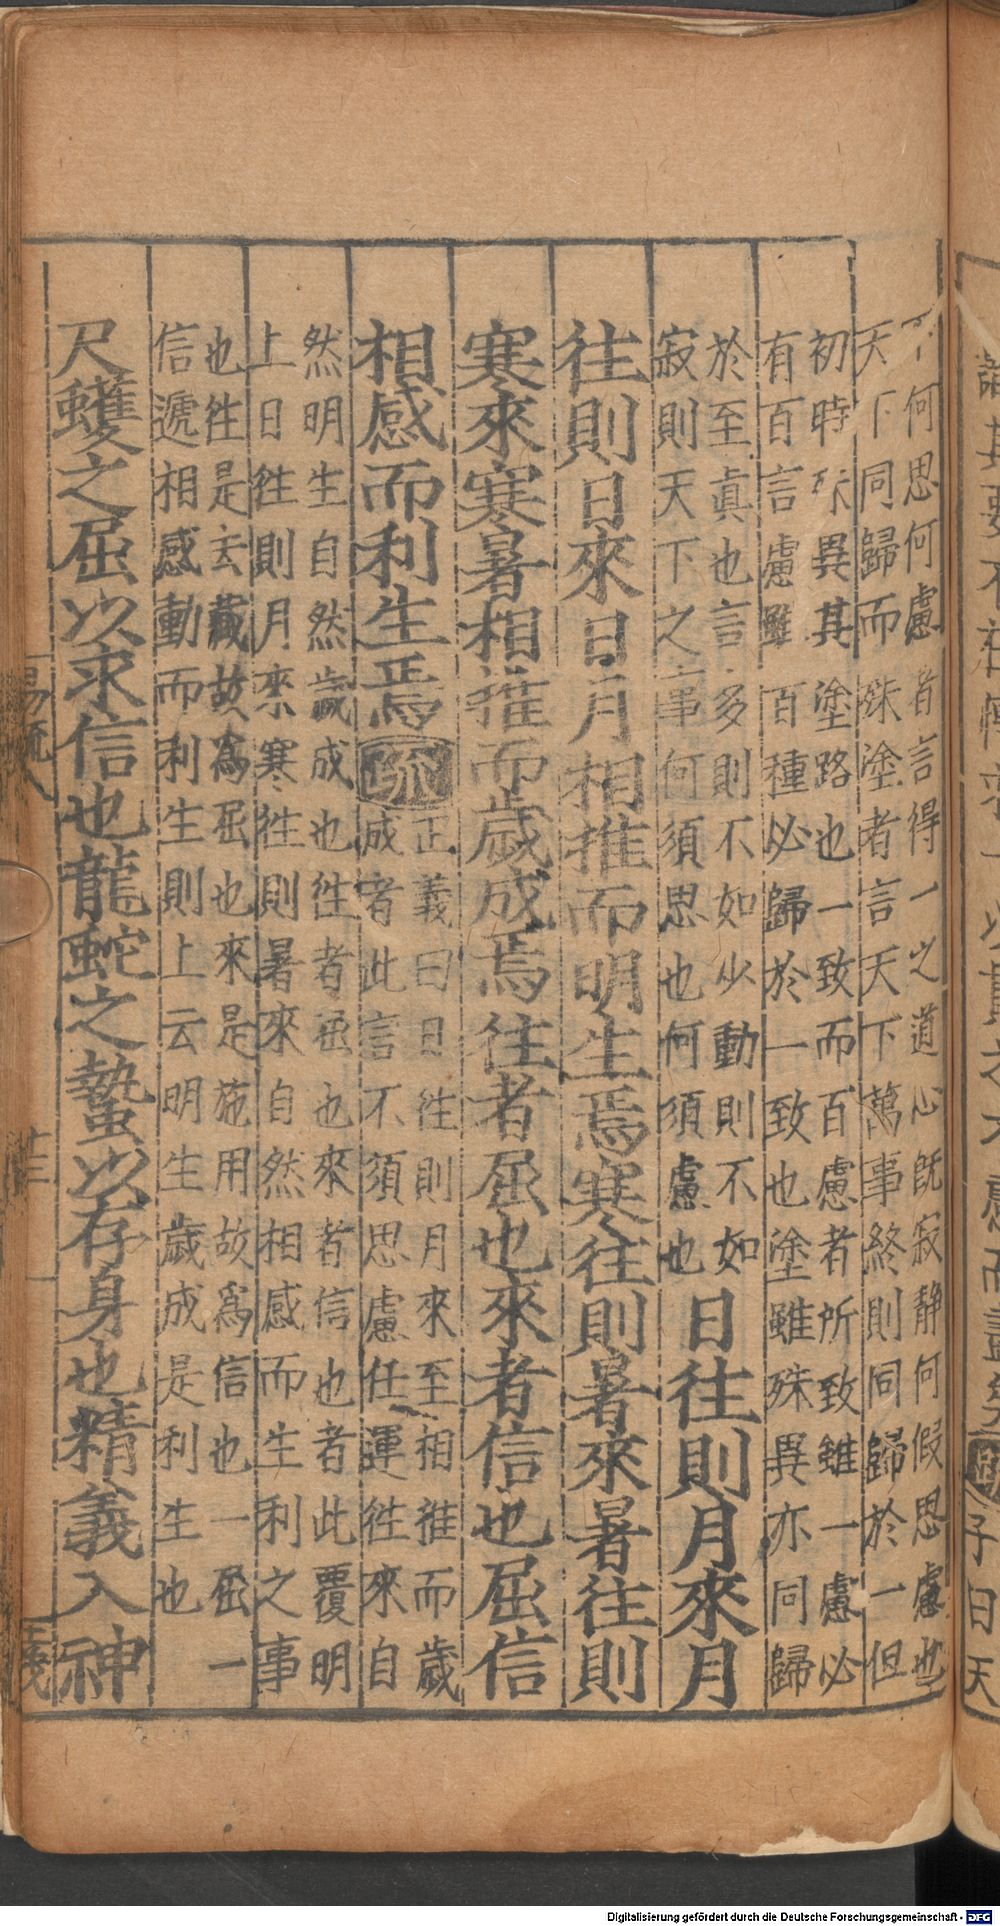 下何思何慮者言得一之道心旣寂静何假思慮也
天下同歸而殊塗者言天下萬事終則同歸於一但
初時異其塗路也一致而百慮者所致雖一慮必
有百言慮雖百種必歸於一致也塗雖殊異亦同歸
於至眞也言多則不如少動則不如
寂則天下之事何須思也何須慮也
日往則月來月
往則日來日月相推而明生焉寒往則暑來暑往則
寒來寒暑相推而歲成焉往者屈也來者信也屈信
相感而利生焉
疏
正義曰日往則月來至相推而歲
成者此言不須思慮任運往來自
然明生自然歲成也往者屈也來者信也者此覆明
上日往則月來寒往則暑來自然相感而生利之事
也往是去藏故爲屈也來是施用故爲信也一屈一
信遞相感動而利生則上云明生歲成是利生也
尺蠖之屈以求信也龍蛇之蟄以存身也精義入神
易疏八
子曰天
Digitalisierung gefördert durch die Deutsche Forschungsgemeinschaft - DFG